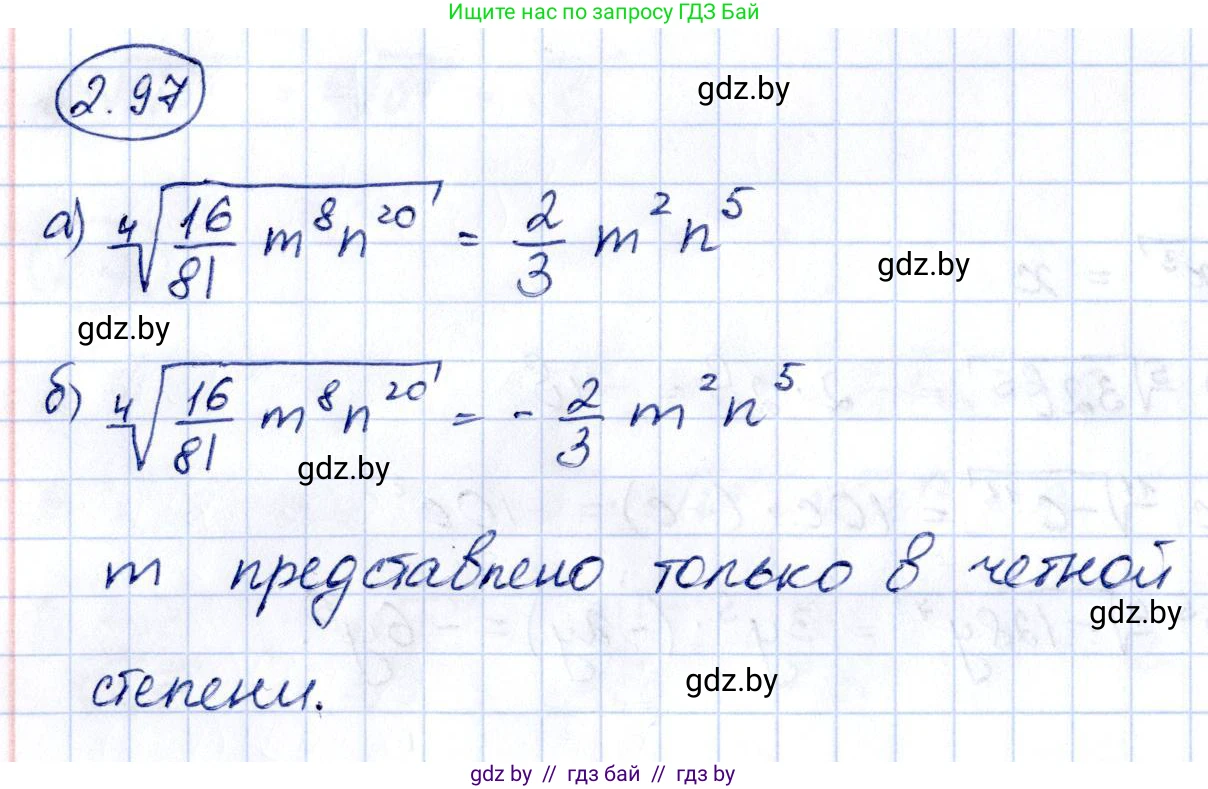 Ищите нас по запросу ГДЗ Бай
2.97
gdz.by
а) ∜(16/81 m⁸n²⁰) = 2/3 m²n⁵
gdz.by
gdz.by
б) ∜(16/81 m⁸n²⁰) = - 2/3 m²n⁵
gdz.by
m представлено только в четной
gdz.by
степени.
gdz.by
gdz by // гдз бай // гдз by